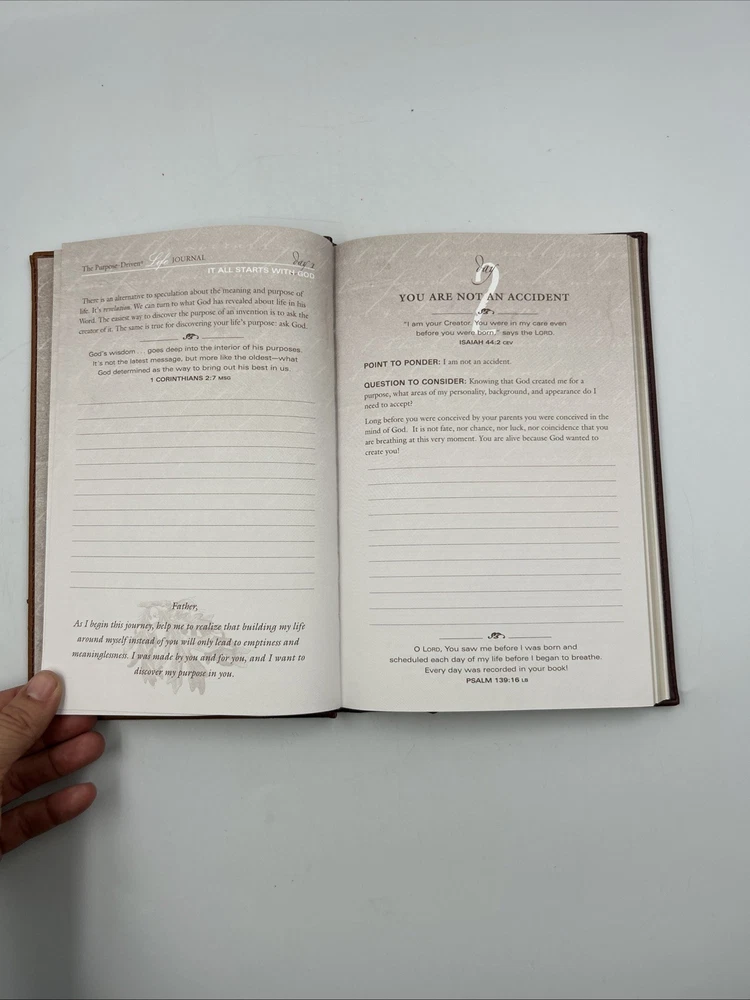 The Purpose-Driven® Life JOURNAL
day 1
IT ALL STARTS WITH GOD
There is an alternative to speculation about the meaning and purpose of
life. It's revelation. We can turn to what God has revealed about life in his
Word. The easiest way to discover the purpose of an invention is to ask the
creator of it. The same is true for discovering your life's purpose: ask God.
God's wisdom . . . goes deep into the interior of his purposes.
It's not the latest message, but more like the oldest—what
God determined as the way to bring out his best in us.
1 CORINTHIANS 2:7 MSG
Father,
As I begin this journey, help me to realize that building my life
around myself instead of you will only lead to emptiness and
meaninglessness. I was made by you and for you, and I want to
discover my purpose in you.
day
2
YOU ARE NOT AN ACCIDENT
"I am your Creator. You were in my care even
before you were born," says the LORD.
ISAIAH 44:2 CEV
POINT TO PONDER: I am not an accident.
QUESTION TO CONSIDER: Knowing that God created me for a
purpose, what areas of my personality, background, and appearance do I
need to accept?
Long before you were conceived by your parents you were conceived in the
mind of God. It is not fate, nor chance, nor luck, nor coincidence that you
are breathing at this very moment. You are alive because God wanted to
create you!
O LORD, You saw me before I was born and
scheduled each day of my life before I began to breathe.
Every day was recorded in your book!
PSALM 139:16 LB